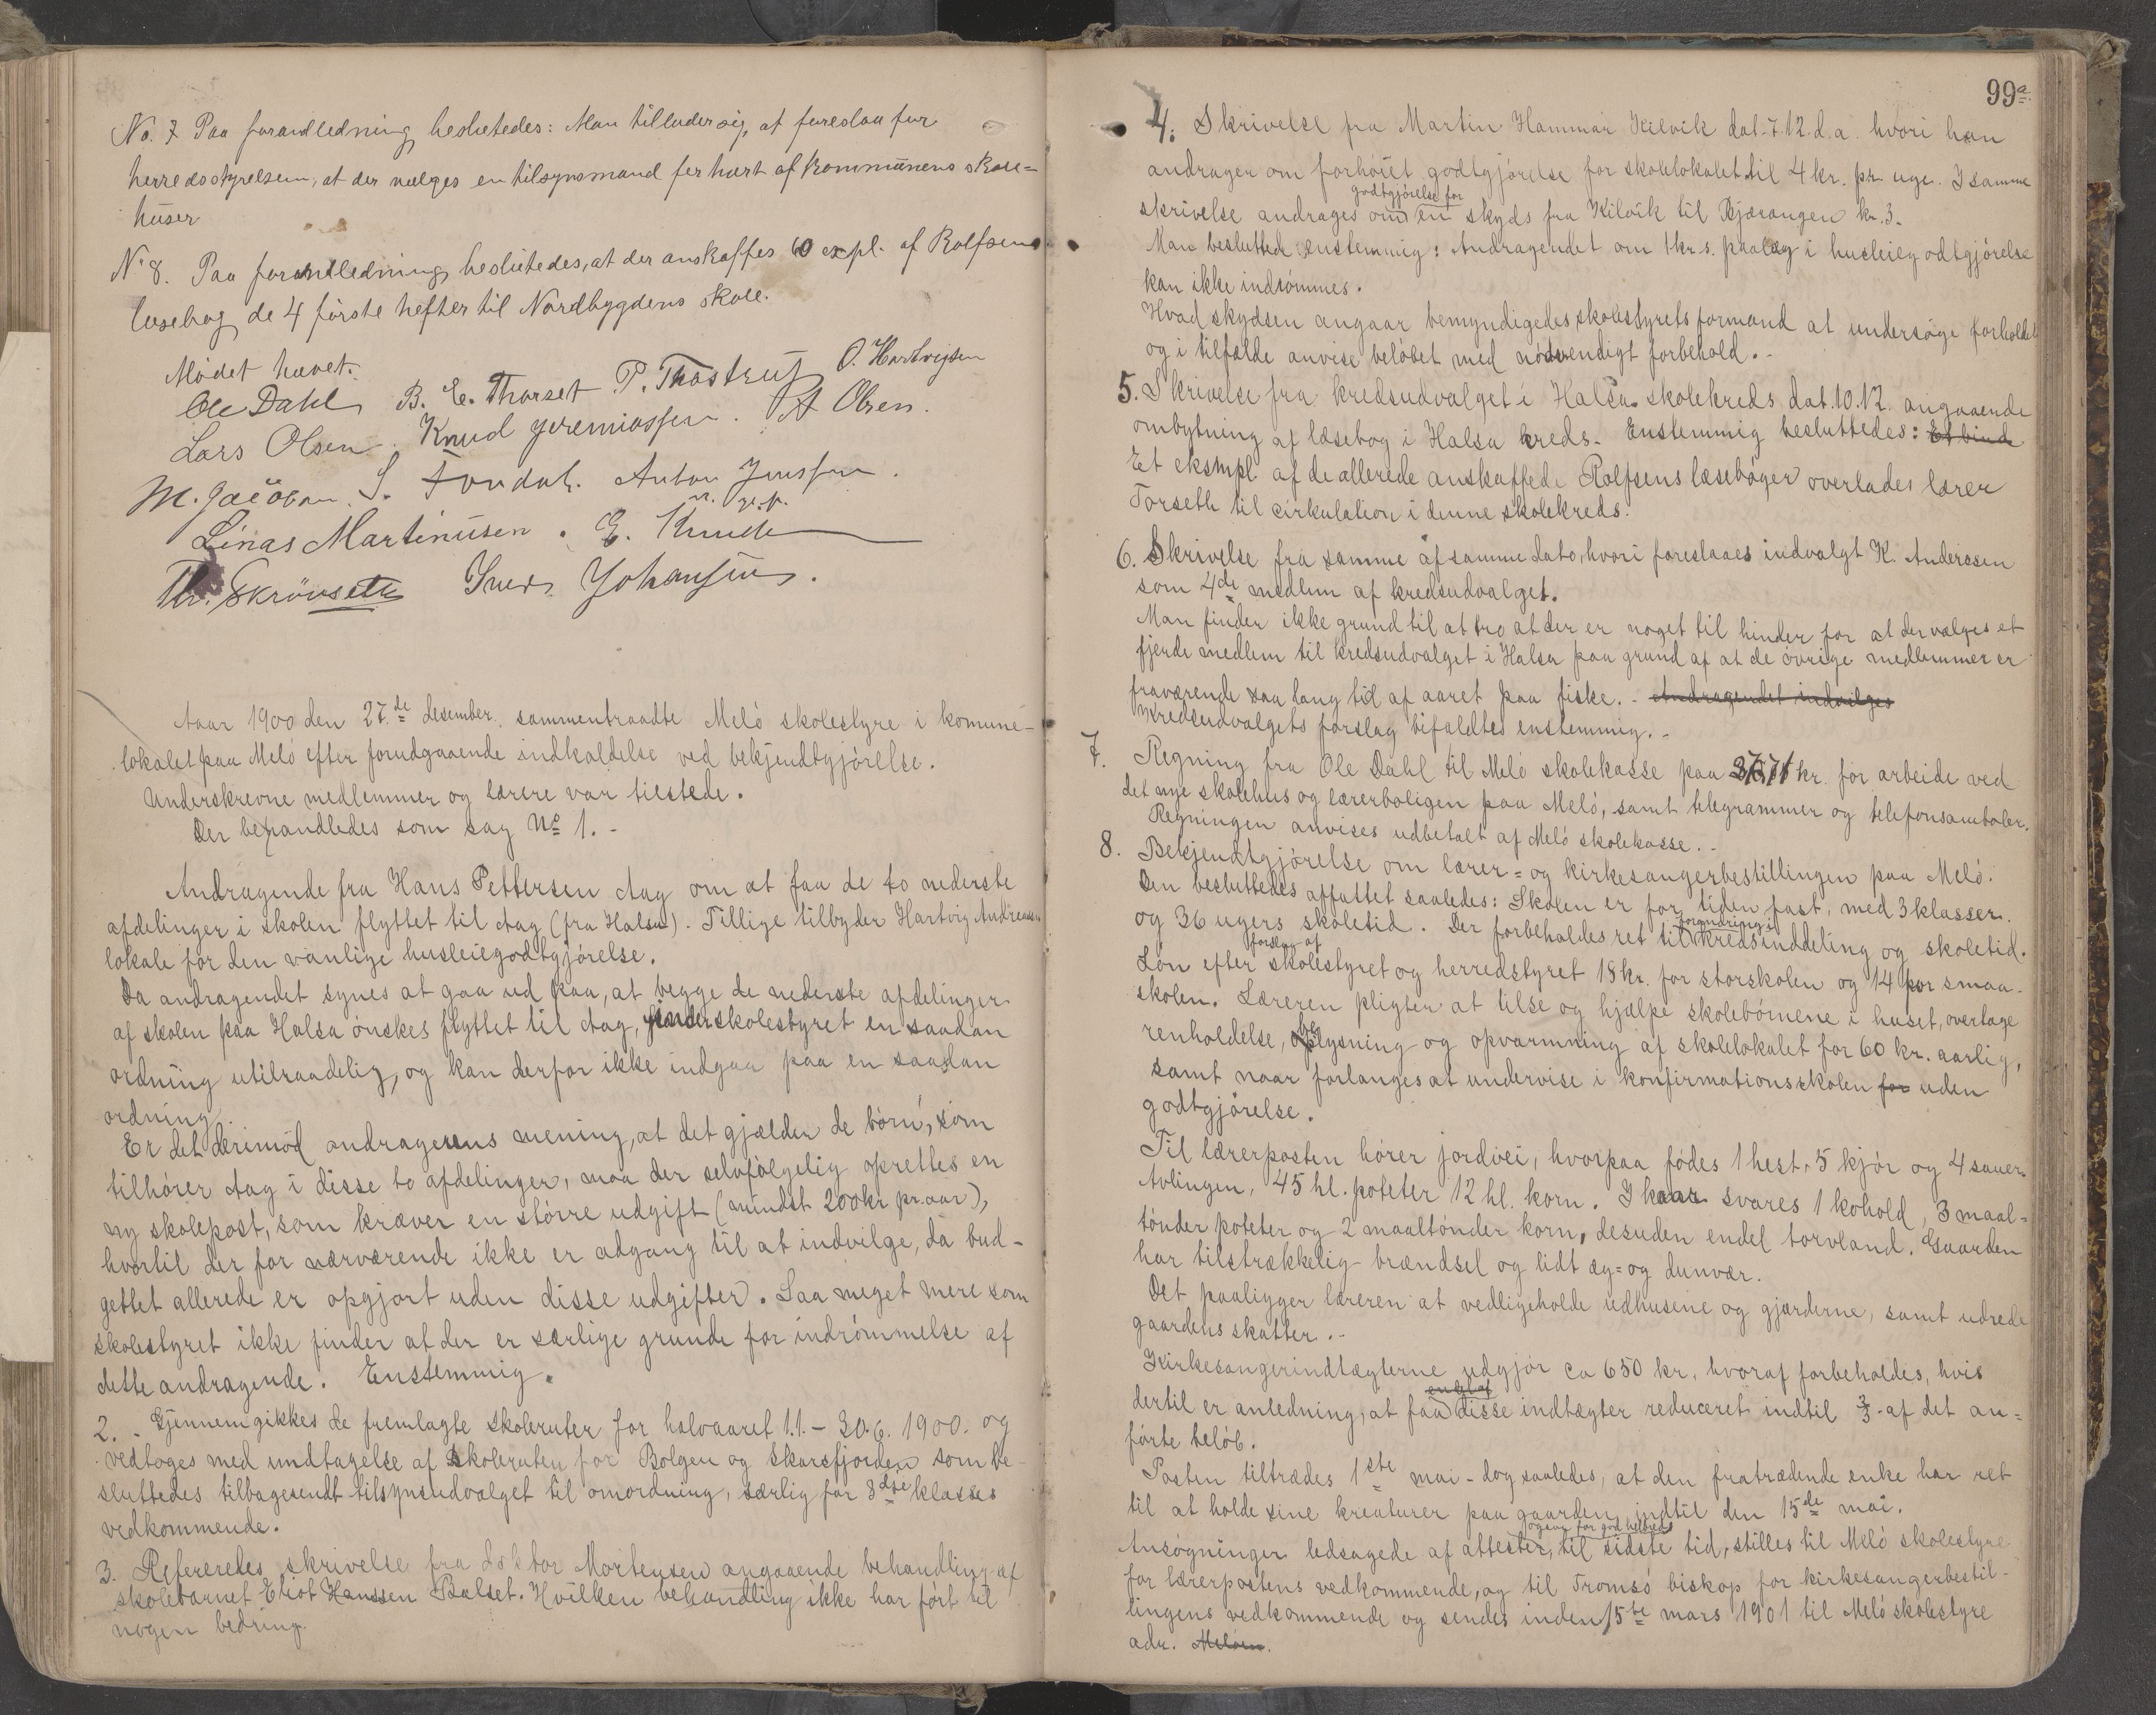 No. 7 Paa foranledning besluttedes: Man tillader sig, at foreslaa for
herredsstyrelsen, at der vælges en tilsynsmand for hvert af kommunens skole=
huser
No 8. Paa foranledning besluttedes, at der anskaffes 60 expl. af Rolfsens
læsebog de 4 förste hefter til Nordbygdens skole.
Mödet hævet.
Ole Dahl B. E. Thorset P. Thostrup O. Hartvigsen
Lars Olsen. Knud Jeremiassen. A Olsen.
M. Jacobsen. S. Fondal. Anton Jenssen.
Linas Martinusen. E. Knud
Th. Skrövseth Iver Johansen.
Aar 1900 den 27.de desember sammentraadte Melö skolestyre i komune-
lokalet paa Melö efter forudgaaende indkaldelse ved bekjendtgjörelse.
Underskrevne medlemmer og lærere var tilstede.
Der behandledes som sag No 1. -
Andragende fra Hans Pettersen Aag om at faa de to nederste
afdelinger i skolen flyttet til Aag (fra Halsa). Tillige tilbyder Hartvig Andreassen
lokale for den vanlige husleiegodtgjörelse.
Da andragendet synes at gaa ud paa, at begge de nederste afdelinger
af skolen paa Halsa önskes flyttet til Aag, finder skolestyret en saadan
ordning utilraadelig, og kan derfor ikke indgaa paa en saadan
ordning.
Er det derimod andragerens mening, at det gjælder de börn, som
tilhörer Aag i disse to afdelinger, maa der selvfölgelig oprettes en
ny skolepost, som kræver en större udgift (mindst 200 kr pr. aar),
hvortil der for nærværende ikke er adgang til at indvilge, da bud-
gettet allerede er opgjort uden disse udgifter. Saa meget mere som
skolestyret ikke finder at der er særlige grunde for indrömmelse af
dette andragende. Enstemmig.
2. Gjennemgikkes de fremlagte skoleruter for halvaaret 1.1. - 30.6. 1900. og
vedtoges med undtagelse af skoleruten for Bolgen og Skarsfjorden som be-
sluttedes tilbagesendt tilsynsudvalget til omordning, særlig for 3dje klasses
vedkommende.
3. Refereredes skrivelse fra doktor Mortensen angaaende behandling af
skolebarnet Hanssen Balset. Hvilken behandling ikke har fört til
nogen bedring.
99a
4. Skrivelse fra Martin Hammar Kilvik dat. 7.12. d.a. hvori han
andrager om forhöiet godtgjörelse for skolelokalet til 4 kr. pr. uge. I samme
godtgjörelse for
skrivelse andrages om en skyds fra Kilvik til Bjærangen kr. 3.
Man besluttede enstemmig: Andragendet om 1 kr.s. paalæg i husleiegodtgjörelse
kan ikke indrömmes.
Hvad skydsen angaar bemyndigedes skolestyrets formand at undersöge forholdet
og i tilfælde anvise belöbet med nödvendigt forbehold. -
5. Skrivelse fra kredsudvalget i Halsa skolekreds dat. 10.12. angaaende
ombytning af læsebog i Halsa kreds. Enstemmig besluttedes: Et bind
Et eksmpl. af de allerede anskaffede Rolfsens læsebøger overlades lærer
Torseth til cirkulation i denne skolekreds.
6. Skrivelse fra samme af samme dato, hvori foreslaaes indvalgt K. Anderssen
som 4de medlem af kredsudvalget.
Man finder ikke grund til at tro at der er noget til hinder for at der vælges et
fjerde medlem til kredsudvalget i Halsa paa grund af at de övrige medlemmer er
fraværende saa lang tid af aaret paa fiske. - Andragendet indvilges
Kredsudvalgets forslag bifaldtes enstemmig. -
7. Regning fra Ole Dahl til Melö skolekasse paa kr. for arbeide ved
det nye skolehus og lærerboligen paa Melö, samt telegrammer og telefonsamtaler.
Regningen anvises udbetalt af Melö skolekasse. -
8. Bekjendtgjörelse om lærer= og kirkesangerbestillingen paa Melö.
Den besluttedes affattet saaledes: Skolen er for tiden fast, med 3 klasser.
forandring i
og 36 ugers skoletid. Der forbeholdes ret til kredsinddeling og skoletid.
forslag af
Lön efter skolestyret og herredstyret 18 kr. for storskolen og 14 for smaa-
skolen. Læreren pligter at tilse og hjælpe skolebörnene i huset, overtage
renholdelse, belysning og opvarmning af skolelokalet for 60 kr. aarlig,
samt naar forlanges at undervise i konfirmationsskolen for uden
godtgjörelse.
Til lærerposten hörer jordvei, hvorpaa födes 1 hest, 5 kjör og 4 sauer.
Avlingen, 45 hl. poteter 12 hl. korn. I kaar svares 1 kohold, 3 maal=
tönder poteter og 2 maaltönder korn, desuden endel torvland. Gaarden
har tilstrækkelig brændsel og lidt æg= og dunvær.
Det paaligger læreren at vedligeholde udhusene og gjærderne, samt udrede
gaardens skatter. -
Kirkesangerindtægterne udgjör ca 650 kr. hvoraf forbeholdes, hvis
endel af
dertil er anledning, at faa disse indtægter reduceret indtil 2/3 af det an=
förte belöb.
Posten tiltrædes 1ste mai - dog saaledes, at den fratrædende enke har ret
til at holde sine kreaturer paa gaarden indtil den 15de mai.
ogsaa for god helbred
Ansögninger ledsagede af attester, til sidste tid, stilles til Melö skolestyre
for lærerpostens vedkommende, og til Tromsö biskop for kirkesangerbestil-
lingens vedkommende og sendes inden 15de mars 1901 til Melö skolestyre
adr. Melöen.